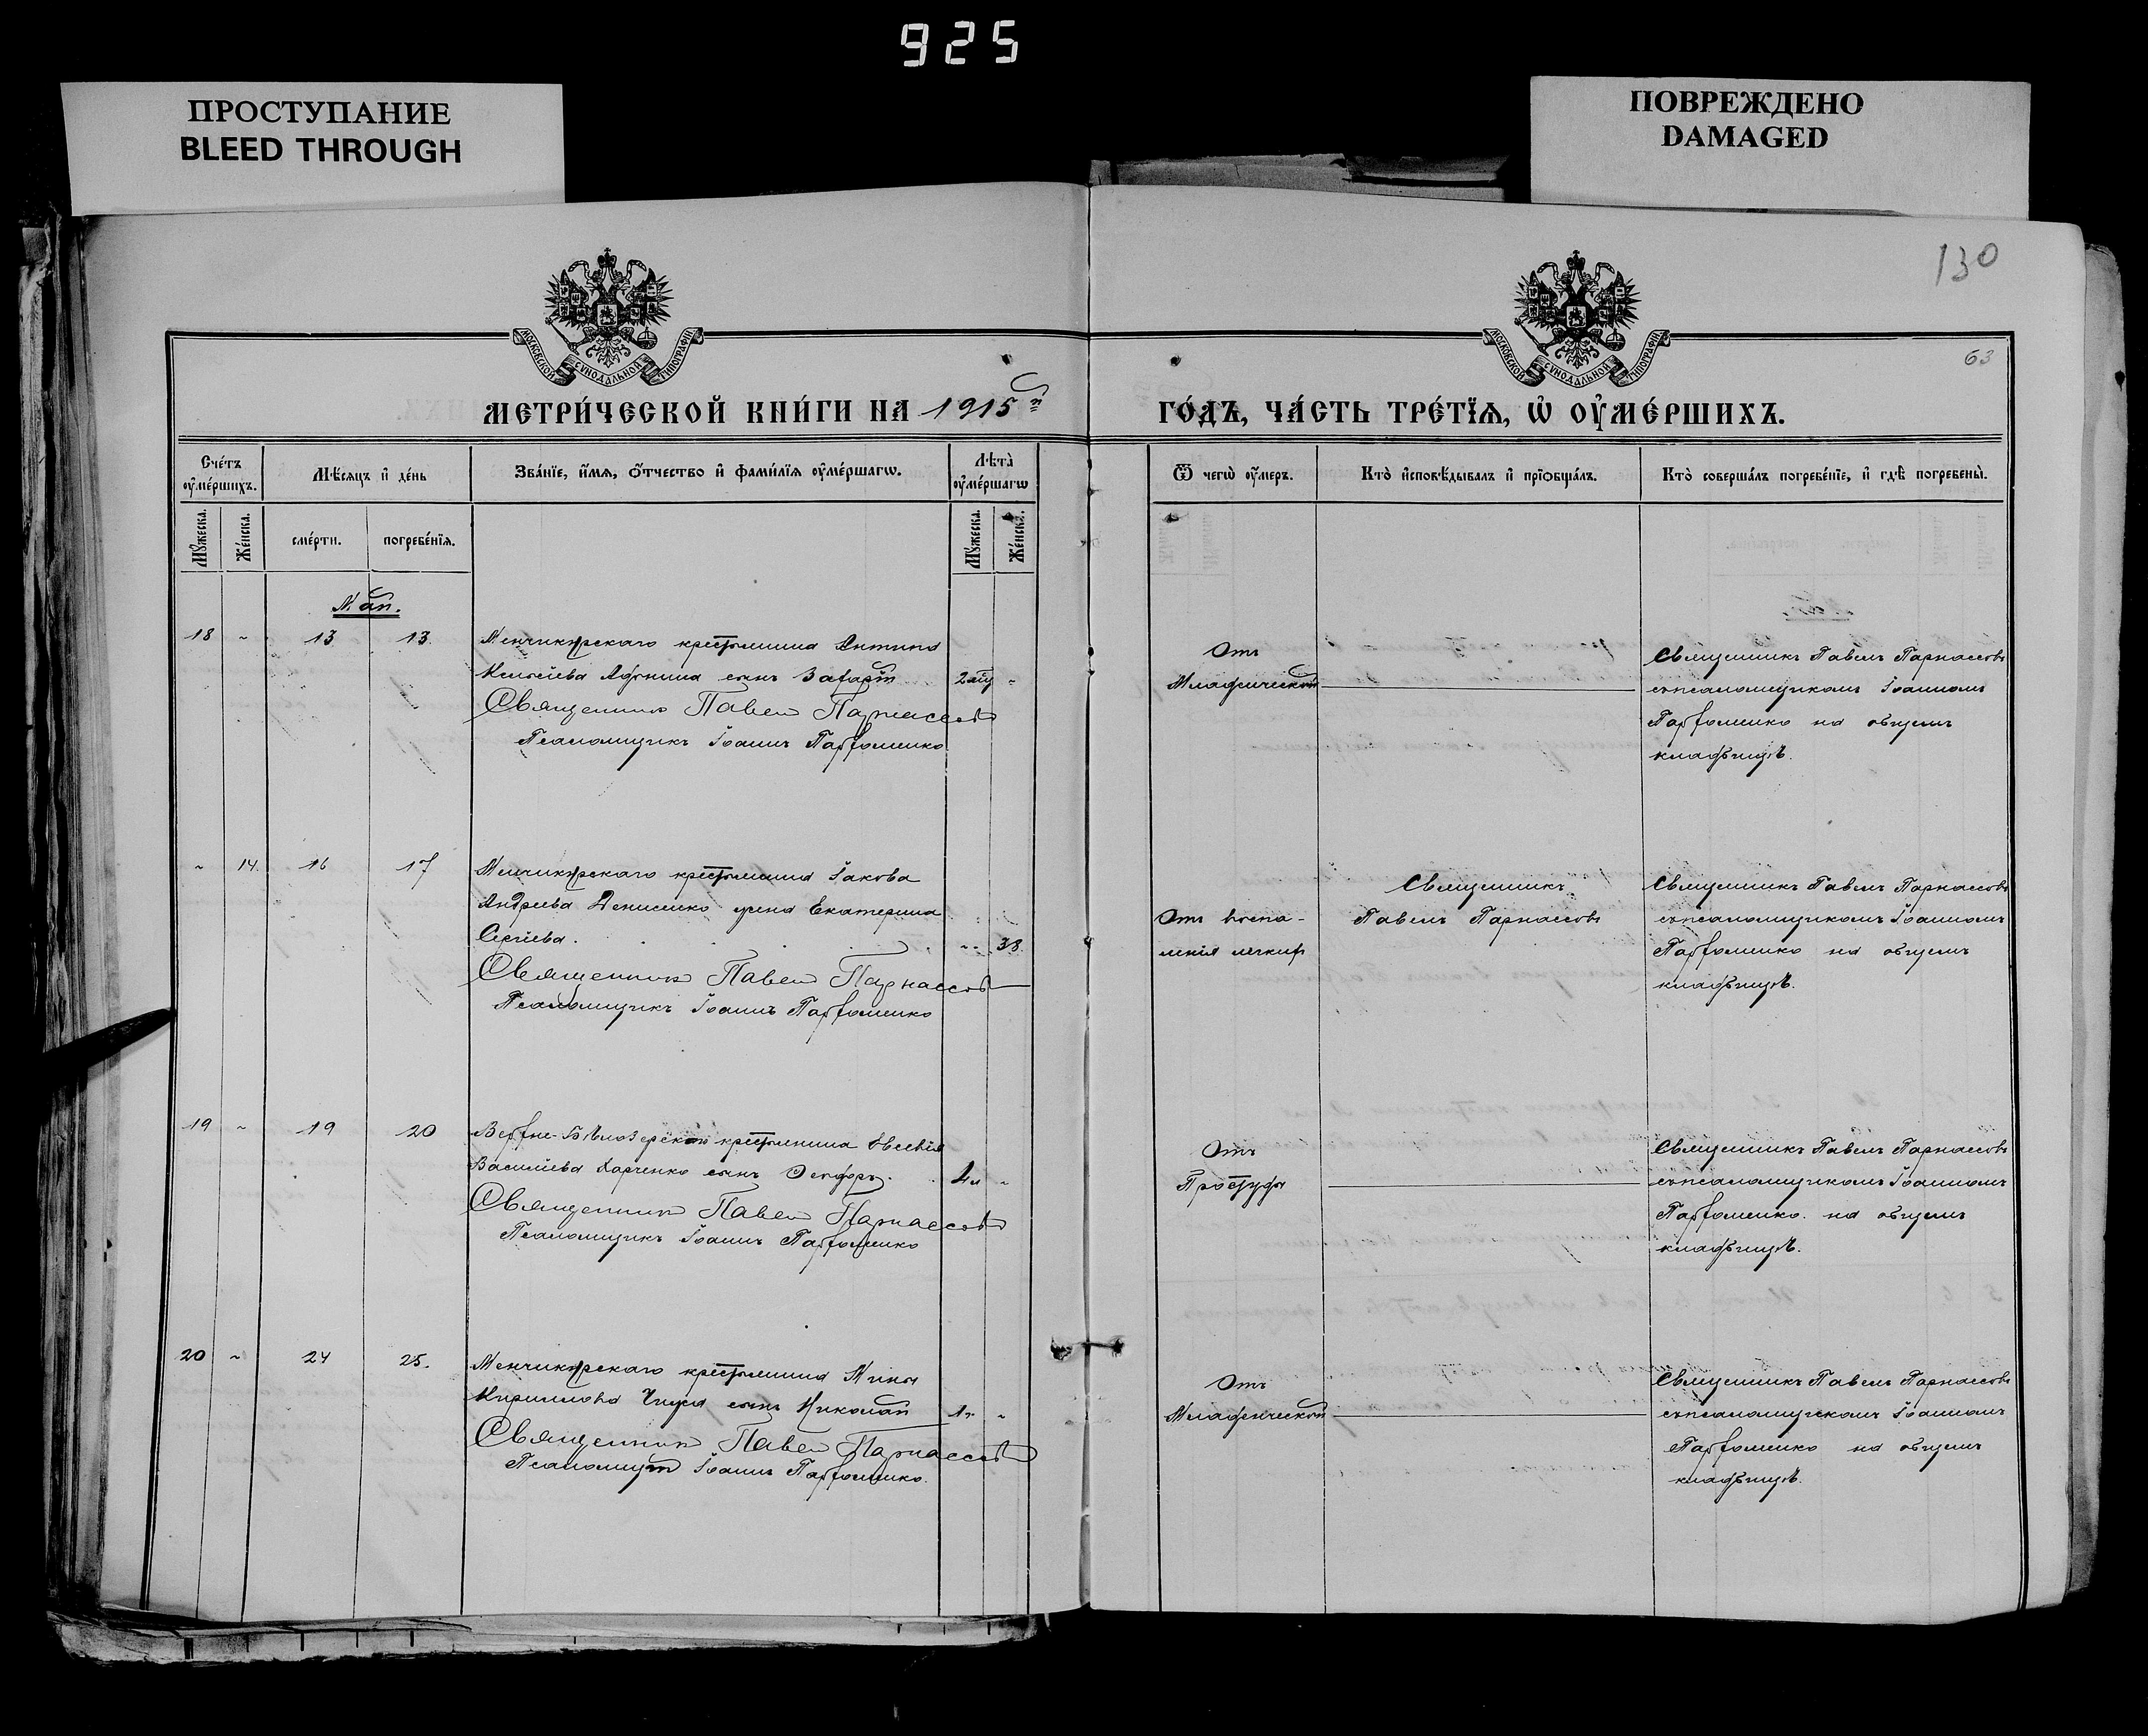 925
ПРОСТУПАНИЕ
BLEED THROUGH
ПОВРЕЖДЕНО
DAMAGED
130
63
МОСКОВСКОЙ СѴНОДАЛЬНОЙ ТИПОГРАФІИ
МОСКОВСКОЙ СѴНОДАЛЬНОЙ ТИПОГРАФІИ
МЕТРИ́ЧЕСКОЙ КНИ́ГИ НА 1915й
ГО́ДЪ, ЧА́СТЬ ТРЕ́ТЇѦ, Ѡ҆ ОУ҆МЕ́РШИХЪ.
Счетъ оумершихъ.
Мѣсяцъ и день
Званїе, имѧ, отчество и фамилїѧ оумершагѡ.
Лѣта оумершагѡ
Ѿ чегѡ оумеръ.
Кто исповѣдывалъ и прїобщалъ.
Кто совершалъ погребенїе, и гдѣ погребены.
Мужеска.
Женска.
смерти.
погребенїѧ.
Мужеска.
Женска.
Май.
18 ~ 13 13.
Менчикурскаго крестьянина Антипа
Афонина сынъ
Священникъ Павелъ Парнассовъ
Псаломщикъ Іоаннъ Парфоменко
Отъ
Младенческой
Священникъ Павелъ Парнассовъ
съ псаломщикомъ Іоанномъ
Парфоменко на общемъ
кладбищѣ.
~ 14. 16 17
Менчикурскаго крестьянина Іакова
Андреева Денисенко жена Екатерина
Сергіева. 38.
Священникъ Павелъ Парнассовъ
Псаломщикъ Іоаннъ Парфоменко
Отъ воспа-
ленія легкихъ
Священникъ
Павелъ Парнассовъ
Священникъ Павелъ Парнассовъ
съ псаломщикомъ Іоанномъ
Парфоменко на общемъ
кладбищѣ.
19 ~ 19 20
Верхне-Бѣлозерской крестьянина Евсевія
Василіева Харченко сынъ
Священникъ Павелъ Парнассовъ
Псаломщикъ Іоаннъ Парфоменко
Отъ
Простуды
Священникъ Павелъ Парнассовъ
съ псаломщикомъ Іоанномъ
Парфоменко на общемъ
кладбищѣ.
20 ~ 24 25.
Менчикурскаго крестьянина Мины
Кириллова сынъ Николай 1г.
Священникъ Павелъ Парнассовъ
Псаломщикъ Іоаннъ Парфоменко.
Отъ
Младенческой
Священникъ Павелъ Парнассовъ
съ псаломщикомъ Іоанномъ
Парфоменко на общемъ
кладбищѣ.